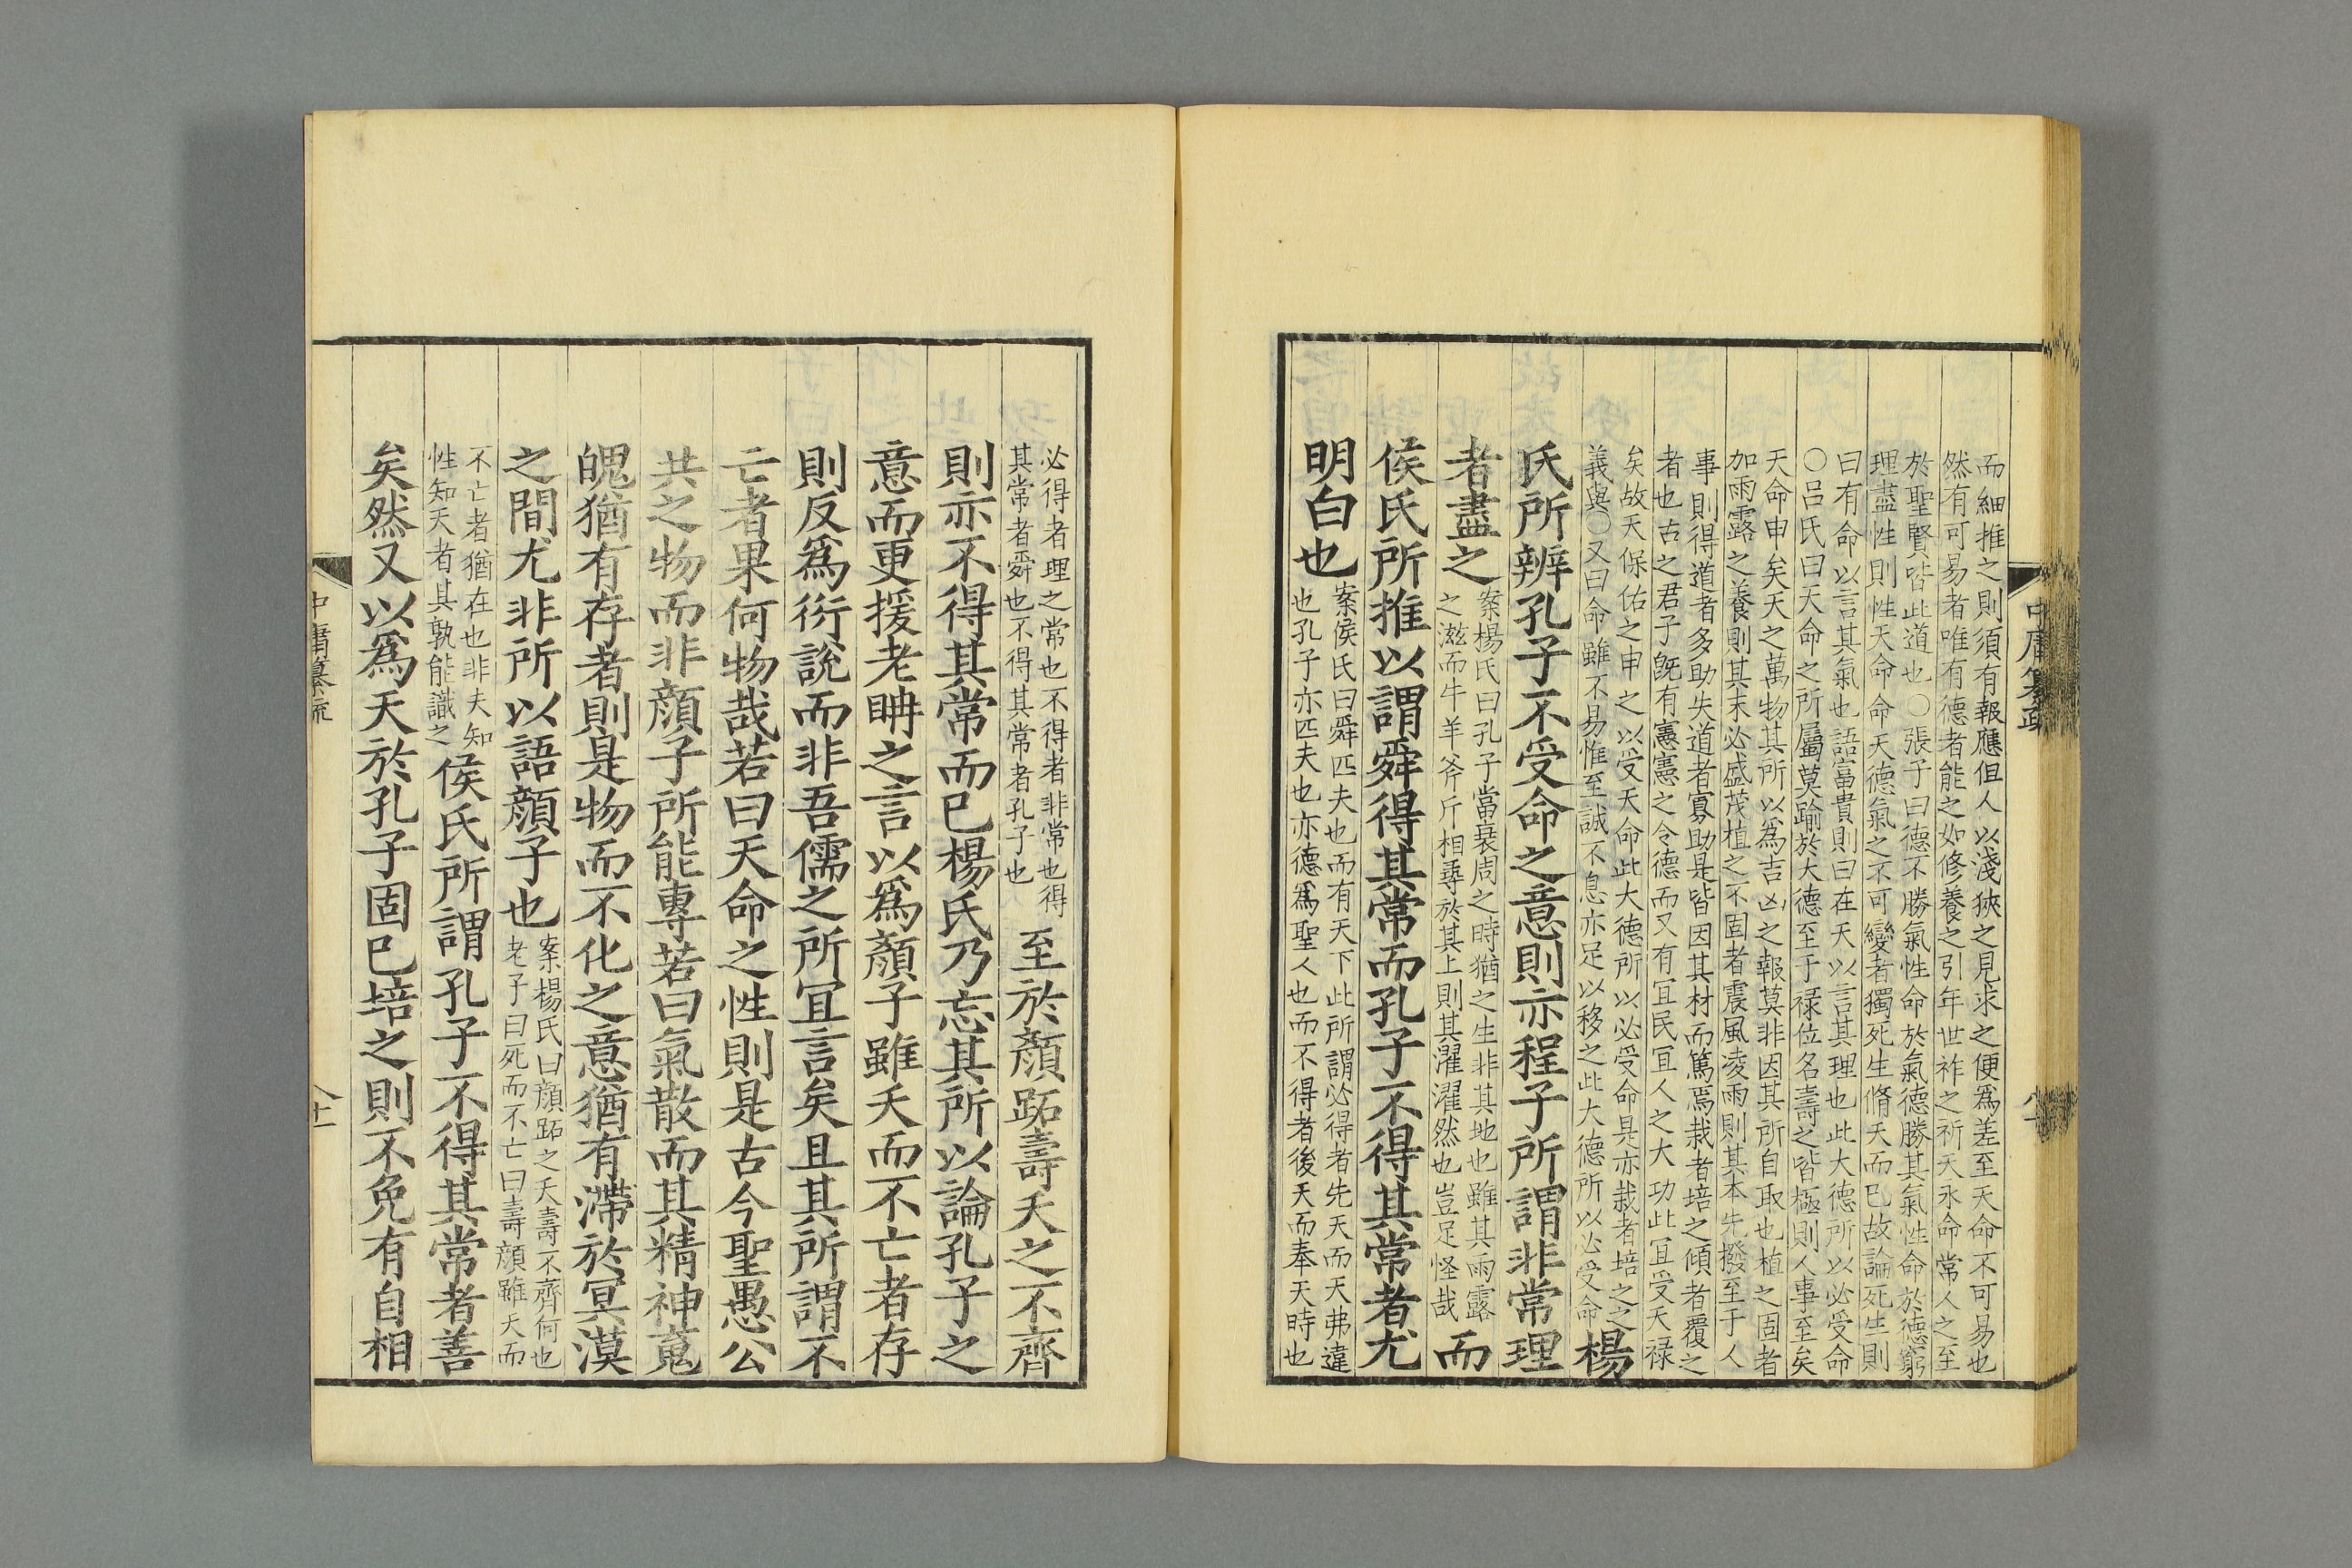 而細推之則須有報應但人以淺狹之見求之便爲差至天命不可易也
然有可易者唯有德者能之如修養之引年世祚之祈天永命常人之至
於聖賢皆此道也〇張子曰德不勝氣性命於氣德勝其氣性命於德窮
理盡性則性天命命天德氣之不可變者獨死生脩夭而已故論死生則
曰有命以言其氣也語富貴則曰在天以言其理也此大德所以必受命
〇呂氏曰天命之所屬莫踰於大德至于禄位名壽之皆極則人事至矣
天命申矣天之萬物其所以為吉凶之報莫非因其所自取也植之固者
加雨露之養則其末必盛茂植之不固者震風凌雨則其本先撥至于人
事則得道者多助失道者寡助是皆因其材而篤焉栽者培之傾者覆之
者也古之君子旣有憲憲之令德而又有宜民宜人之大功此宜受天禄
矣故天保佑之申之以受天命此大德所以必受命是亦栽者培之之
義與〇又曰命雖不易惟至誠不息亦足以移之此大德所以必受命
楊
氏所辨孔子不受命之意則亦程子所謂非常理
者盡之
案楊氏曰孔子當衰周之時猶之生非其地也雖其雨露
之滋而牛羊斧斤相尋於其上則其濯濯然也豈足怪哉
而
侯氏所推以謂舜得其常而孔子不得其常者尤
明白也
案侯氏曰舜匹夫也而有天下此所謂必得者先天而天弗違
也孔子亦匹夫也亦德爲聖人也而不得者後天而奉天時也
中庸纂疏
必得者理之常也不得者非常也得
其常者舜也不得其常者孔子也
至於顏跖壽夭之不齊
則亦不得其常而已楊氏乃忘其所以論孔子之
意而更援老聃之言以爲顏子雖夭而不亡者存
則反爲衍說而非吾儒之所宜言矣且其所謂不
亡者果何物哉若曰天命之性則是古今聖愚公
共之物而非顏子所能專若曰氣散而其精神䰟
魄猶有存者則是物而不化之意猶有滯於冥漠
之間尤非所以語顏子也
案楊氏曰顏跖之夭壽不齊何也
老子曰死而不亡曰壽顏雖夭而
不亡者猶在也非夫知
性知天者其孰能識之
侯氏所謂孔子不得其常者善
矣然又以爲天於孔子固已培之則不免有自相
中庸纂疏